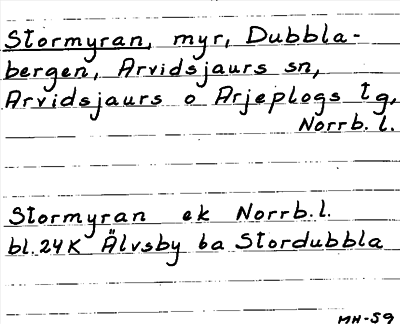 Stormyran, myr, Dubbla-
bergen, Arvidsjaurs sn,
Arvidsjaurs o Arjeplogs tg,
Norrb. l.
Stormyran ek Norrb.l.
bl. 24K Älvsby 6a Stordubbla
MH-59